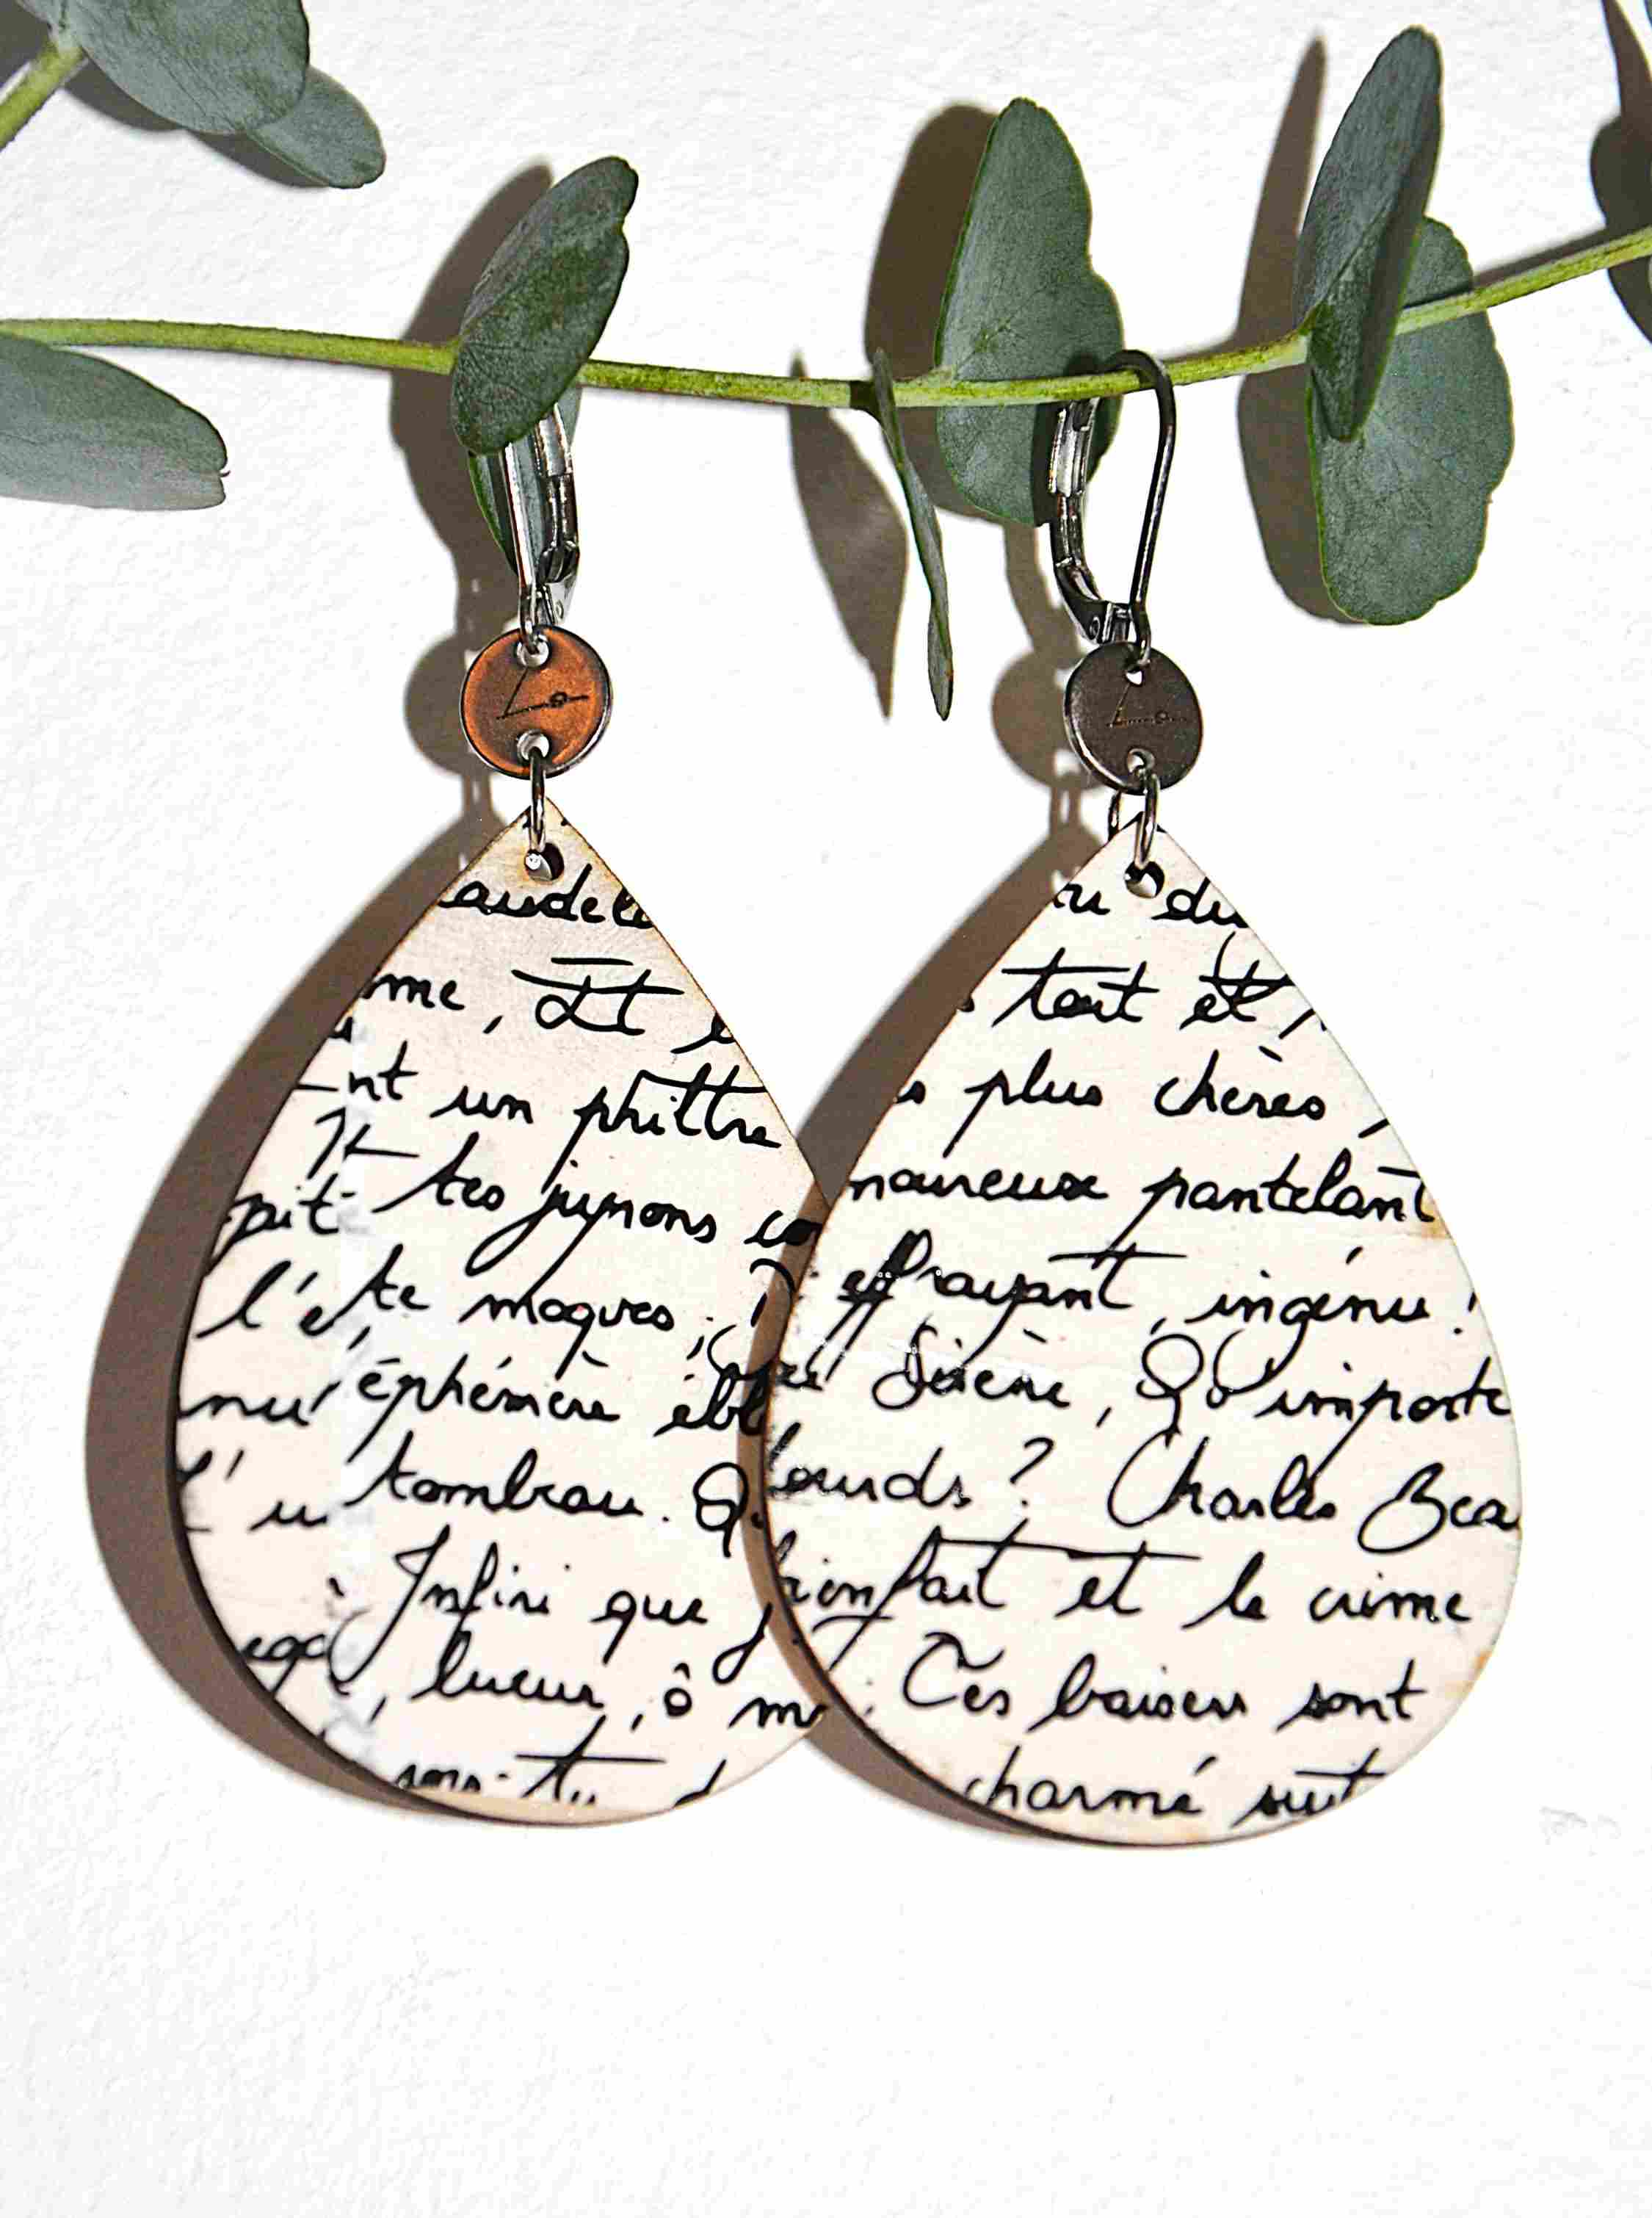 Lo
audela
me, Et
nt un philtre
pit tes jupons co
l'e te moques,
nu éphémère ébl
l'u tombeau. Q
Infini que j
ega, lueur, ô m
sons-tu d
Lo
au du
tout et
plus chères,
moureux pantelant
effrayant, ingénu!
Sirène, Qu'importe
lourds? Charles Bea
bienfait et le crime
. Tes baisers sont
charmé suit